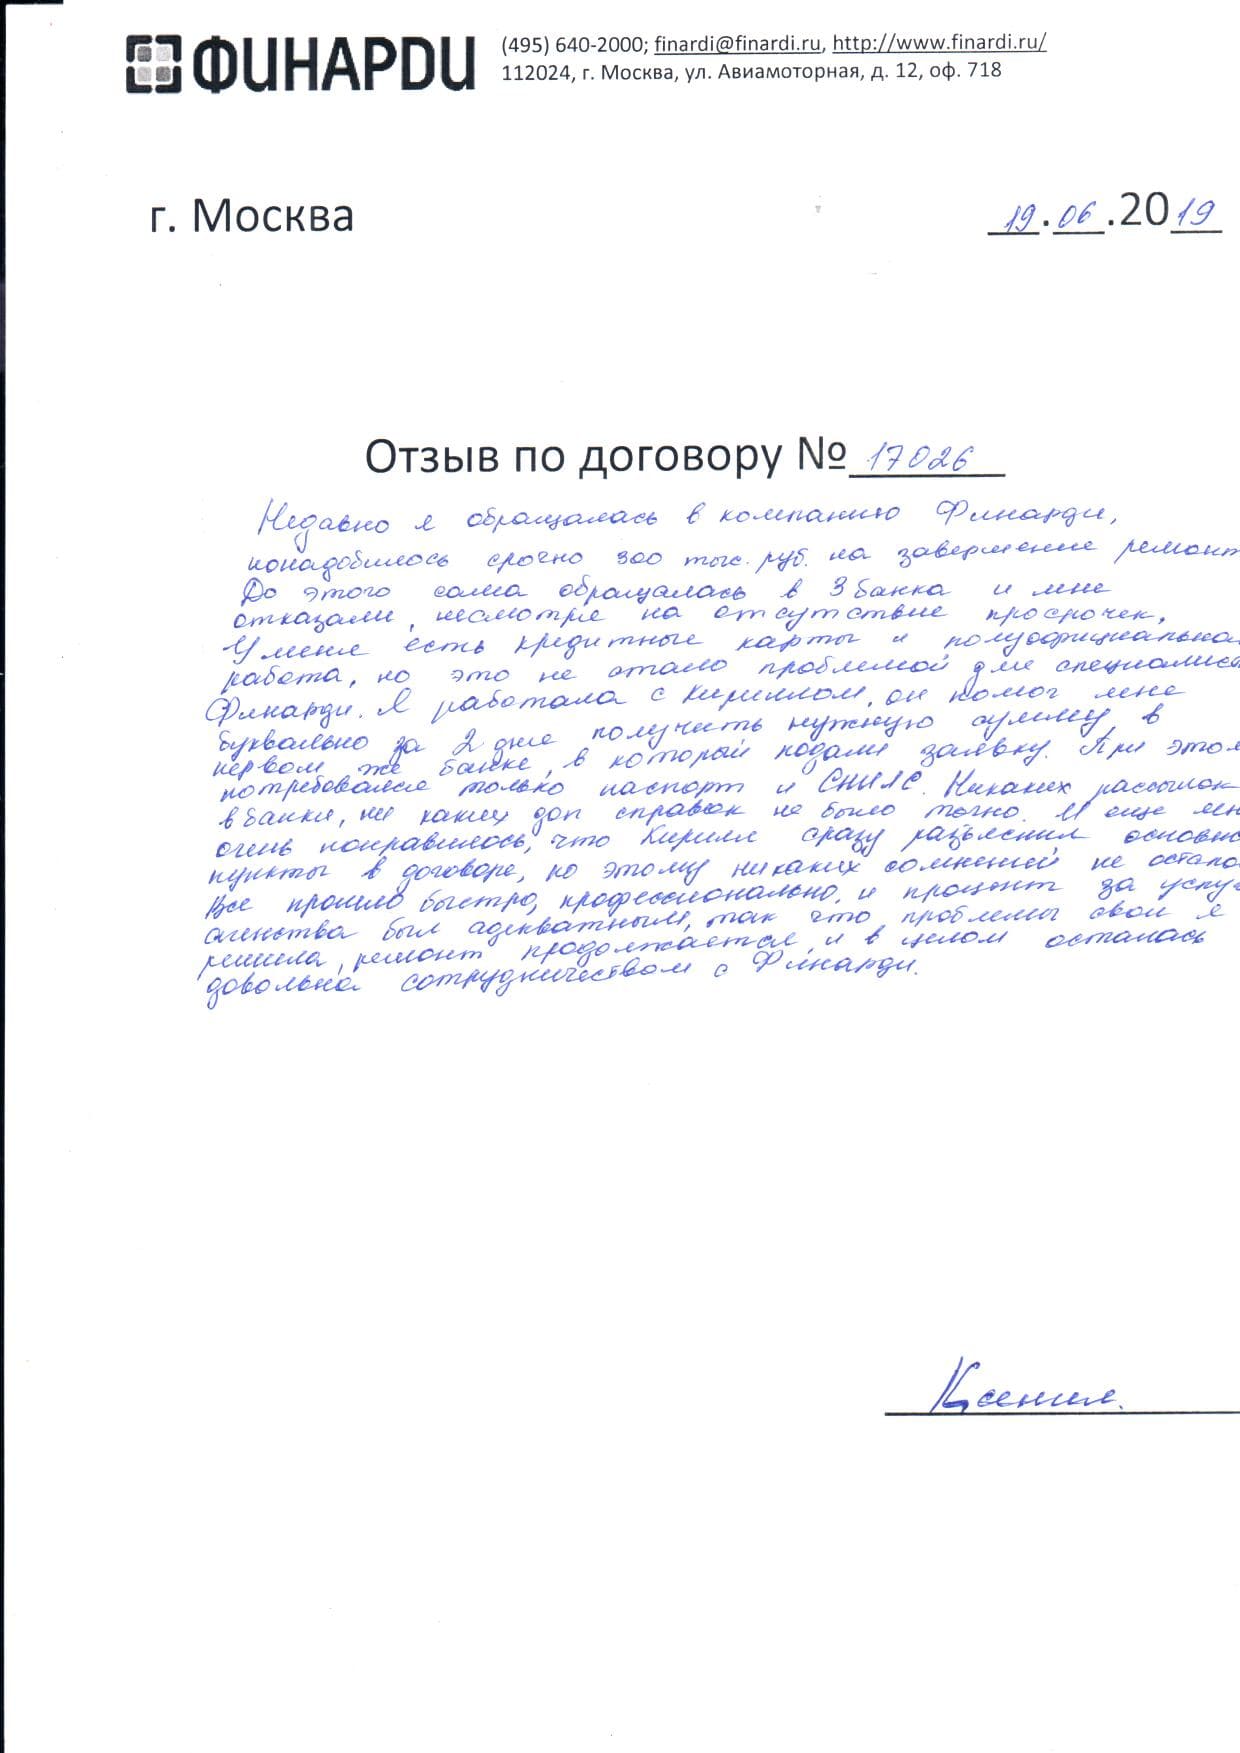 ФИНАРДИ
(495) 640-2000; finardi@finardi.ru, http://www.finardi.ru/
112024, г. Москва, ул. Авиамоторная, д. 12, оф. 718
г. Москва
19.06.2019
Отзыв по договору №17026
Недавно я обращалась в компанию Финарди,
понадобилось срочно 300 тыс. руб. на завершение ремонт
До этого сама обращалась в 3 банка и мне
отказали, несмотря на отсутствие просрочек,
У меня есть кредитные карты и полуофициальна
работа, но это не стало проблемой для специалис
Финарди. Я работала с Кириллом, он помог мне
буквально за 2 дня получить нужную сумму в
первом же банке, в который подали заявку. При этом
потребовался только паспорт и СНИЛС. Никаких рассылок
в банки, ни каких доп справок не было точно. И еще мн
очень понравилось, что Кирилл сразу разъяснил основно
пункты в договоре, по этому никаких сомнений не остало
Все прошло быстро, профессионально, и процент за услу
агенства был адекватным, так что проблемы свои я
решила, ремонт продолжается, и в целом осталась
довольна сотрудничеством с Финарди.
Ксения.